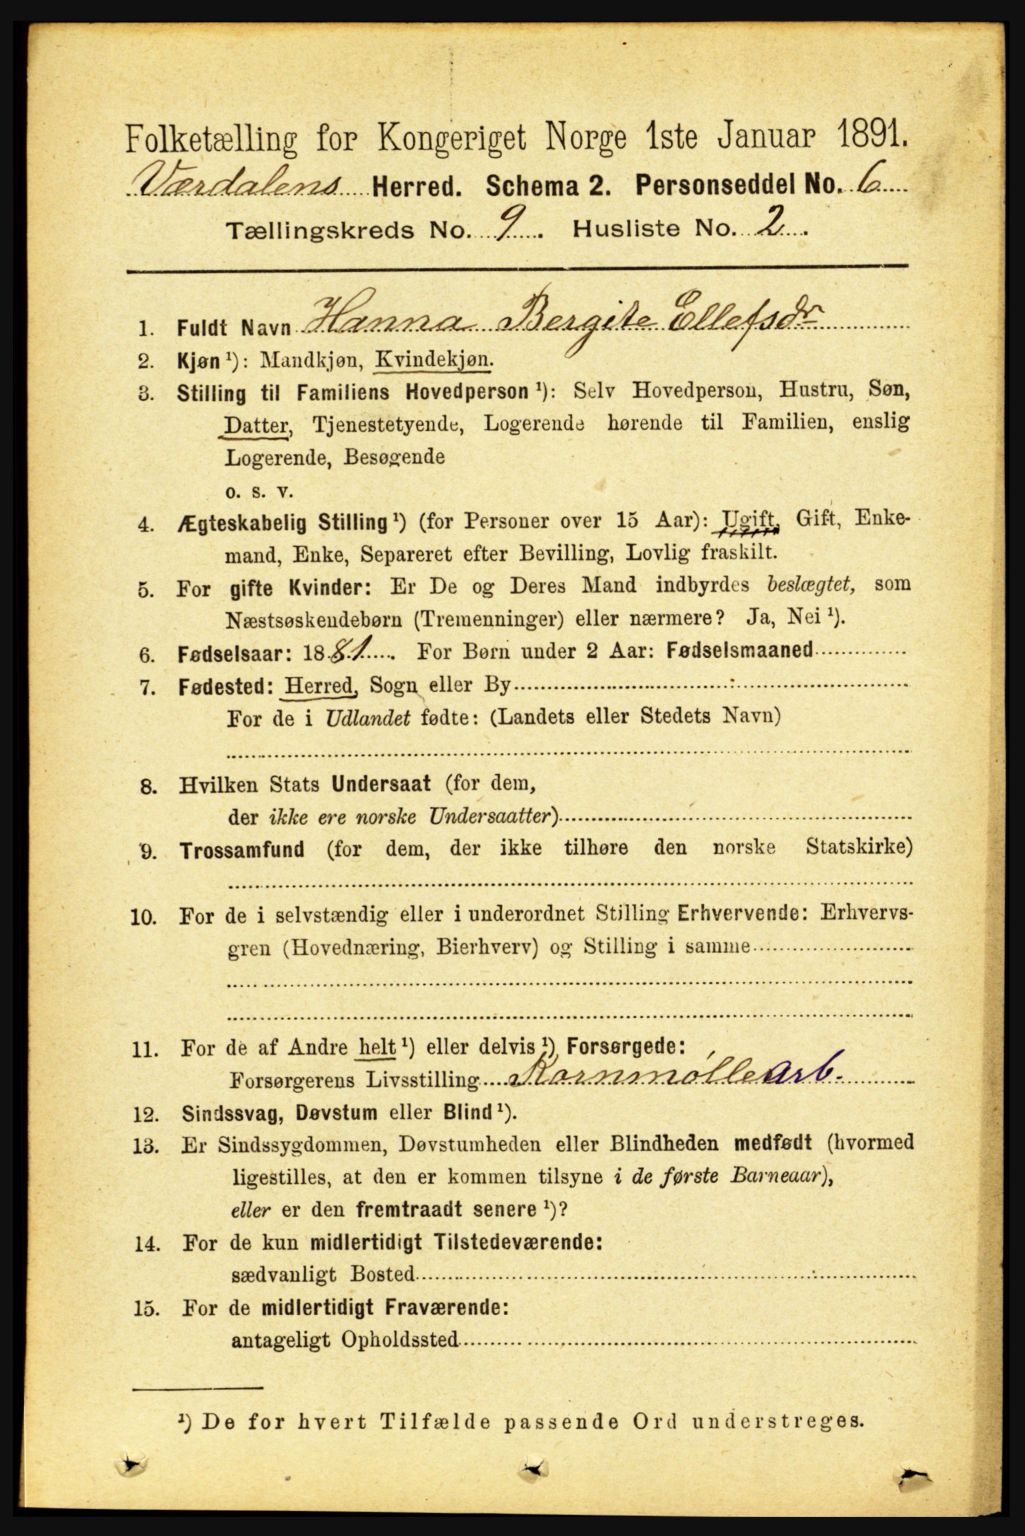 Folketælling for Kongeriget Norge 1ste Januar 1891.
Værdalens Herred. Schema 2. Personseddel No. 6
Tællingskreds No. 9. Husliste No. 2.
1. Fuldt Navn Hanna Bergite Ellefsdr
2. Kjøn ¹): Mandkjøn, Kvindekjøn.
3. Stilling til Familiens Hovedperson ¹): Selv Hovedperson, Hustru, Søn,
Datter, Tjenestetyende, Logerende hørende til Familien, enslig
Logerende, Besøgende
o. s. v.
4. Ægteskabelig Stilling ¹) (for Personer over 15 Aar): Ugift, Gift, Enke-
mand, Enke, Separeret efter Bevilling, Lovlig fraskilt.
5. For gifte Kvinder: Er De og Deres Mand indbyrdes beslægtet, som
Næstsøskendebørn (Tremenninger) eller nærmere? Ja, Nei ¹).
6. Fødselsaar: 1881. For Børn under 2 Aar: Fødselsmaaned
7. Fødested: Herred, Sogn eller By
For de i Udlandet fødte: (Landets eller Stedets Navn)
8. Hvilken Stats Undersaat (for dem,
der ikke ere norske Undersaatter)
9. Trossamfund (for dem, der ikke tilhøre den norske Statskirke)
10. For de i selvstændig eller i underordnet Stilling Erhvervende: Erhvervs-
gren (Hovednæring, Bierhverv) og Stilling i samme
11. For de af Andre helt ¹) eller delvis ¹) Forsørgede:
Forsørgerens Livsstilling Kornmøllearb.
12. Sindssvag, Døvstum eller Blind ¹).
13. Er Sindssygdommen, Døvstumheden eller Blindheden medfødt (hvormed
ligestilles, at den er kommen tilsyne i de første Barneaar),
eller er den fremtraadt senere ¹)?
14. For de kun midlertidigt Tilstedeværende:
sædvanligt Bosted
15. For de midlertidigt Fraværende:
antageligt Opholdssted
¹) De for hvert Tilfælde passende Ord understreges.